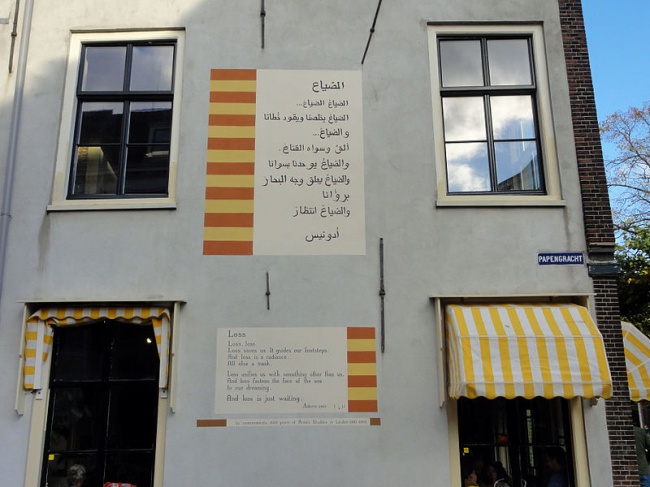 الضياع
الضياعُ الضياعْ...
الضياعُ يخلّصنا ويقود خُطانا
والضياعْ...
ألقٌ وسواه القناعْ.
والضياعُ يوحدنا بسوانا
والضياعُ يعلّق وجه البحار
برؤانا
والضياعُ انتظارْ
أدونيس
PAPENGRACHT
Loss
Loss, loss.
Loss saves us. It guides our footsteps.
And loss is a radiance.
All else a mask.
Loss unifies us with something other than us.
And loss fastens the face of the sea
to our dreaming.
And loss is just waiting.